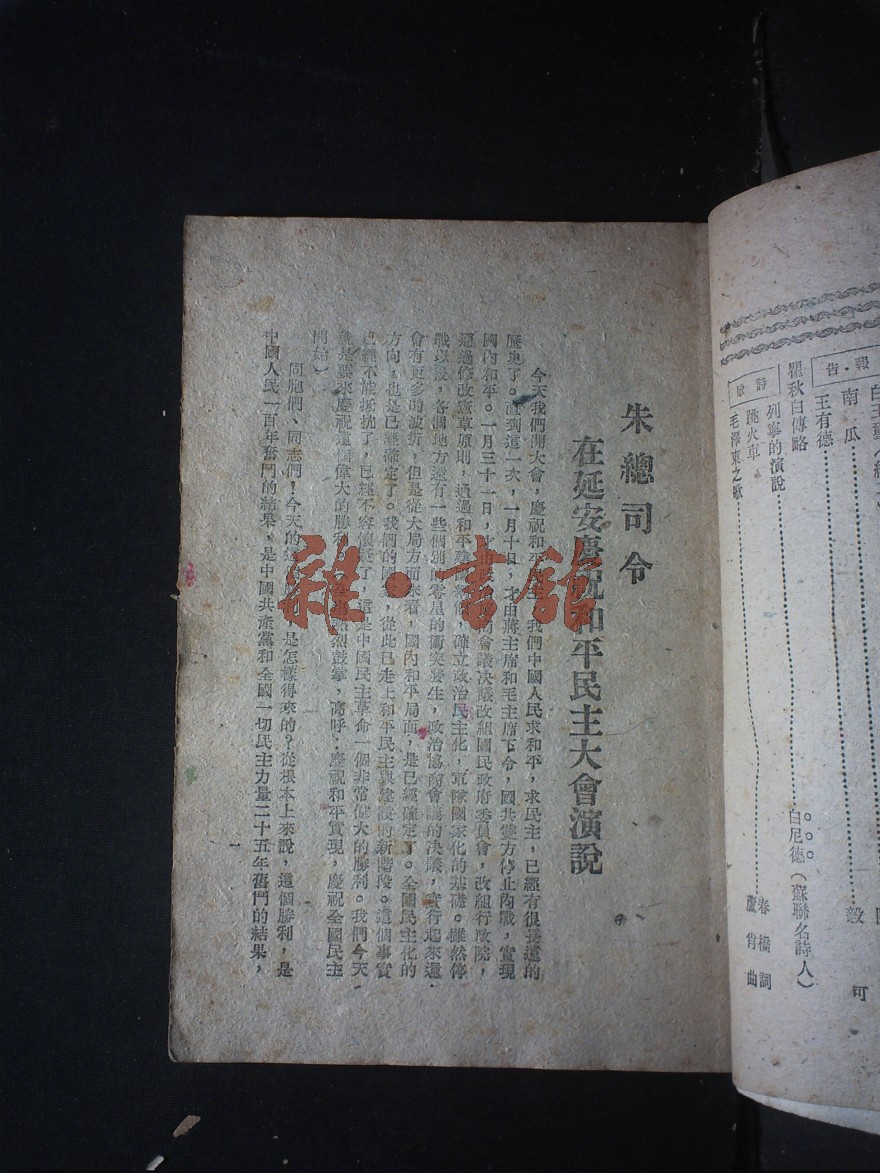 報・告
南瓜 毅
王有德
瞿秋白傳略
詩歌
列寧的演說 白尼德(蘇聯名詩人)
跳火車
毛澤東之歌 春橋詞 盧肯曲
朱總司令
在延安慶祝和平民主大會演說
今天我們開大會,慶祝和平民主,我們中國人民求和平,求民主,已經有很長遠的
歷史了。直到這一次,一月十日,才由蔣主席和毛主席下令,國共雙方停止內戰,實現
國內和平。一月三十一日,才由政治協商會議決議改組國民政府委員會,改組行政院,
通過修改憲草原則,通過和平建國綱領,確立政治民主化,軍隊國家化的基礎。雖然停
戰以後,各個地方還有一些個別的零星的衝突發生,政治協商會議的決議,實行起來還
會有更多的波折,但是從大局方面來看,國內和平局面,是已經確定了。全國民主化的
方向,也是已經確定了。我們的國家,從此已走上和平民主與建設的新階段。這個事實
已經不能抵抗了,已經不容懷疑了,這是中國民主革命一個非常偉大的勝利。我們今天
就是要來慶祝這個偉大的勝利。(熱烈鼓掌,高呼:慶祝和平實現,慶祝全國民主
開始)
同胞們、同志們!今天的這個勝利,是怎樣得來的?從根本上來說,這個勝利,是
中國人民一百年奮鬥的結果,是中國共產黨和全國一切民主力量二十五年奮鬥的結果,
雜・書館